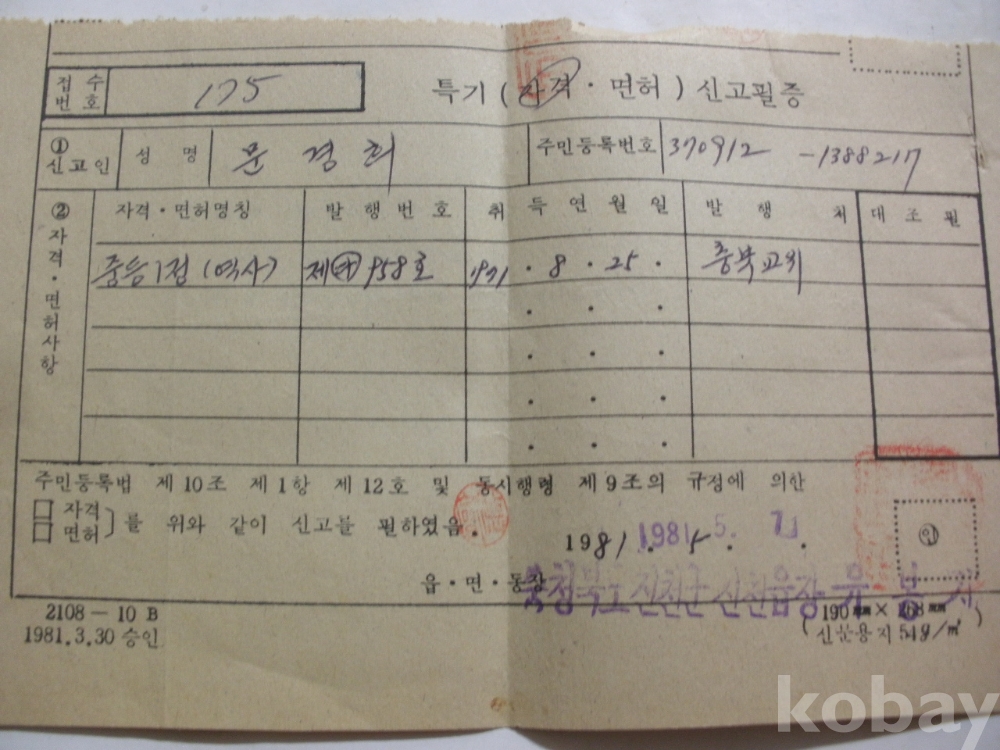 접수번호 175
특기 ( 자격 · 면허 ) 신고필증
① 신고인 성 명 문경희 주민등록번호 370912 - 1388217
② 자격 · 면허사항
자격 · 면허명칭 발 행 번 호 취 득 연 월 일 발 행 처 대 조 필
중등1정 (역사) 제 958호 1971 · 8 · 25 · 충북교위
주민등록법 제 10 조 제 1 항 제 12 호 및 동시행령 제 9 조의 규정에 의한
□ 자격
□ 면허 }를 위와 같이 신고를 필하였음.
1981. 5.
1981. 5. 7
인
읍 · 면 · 동장
충청북도 진천군 진천읍장 유
2108 — 10 B
1981.3.30 승인
190㎜ × 268㎜
신문용지 54g/㎡
kobay